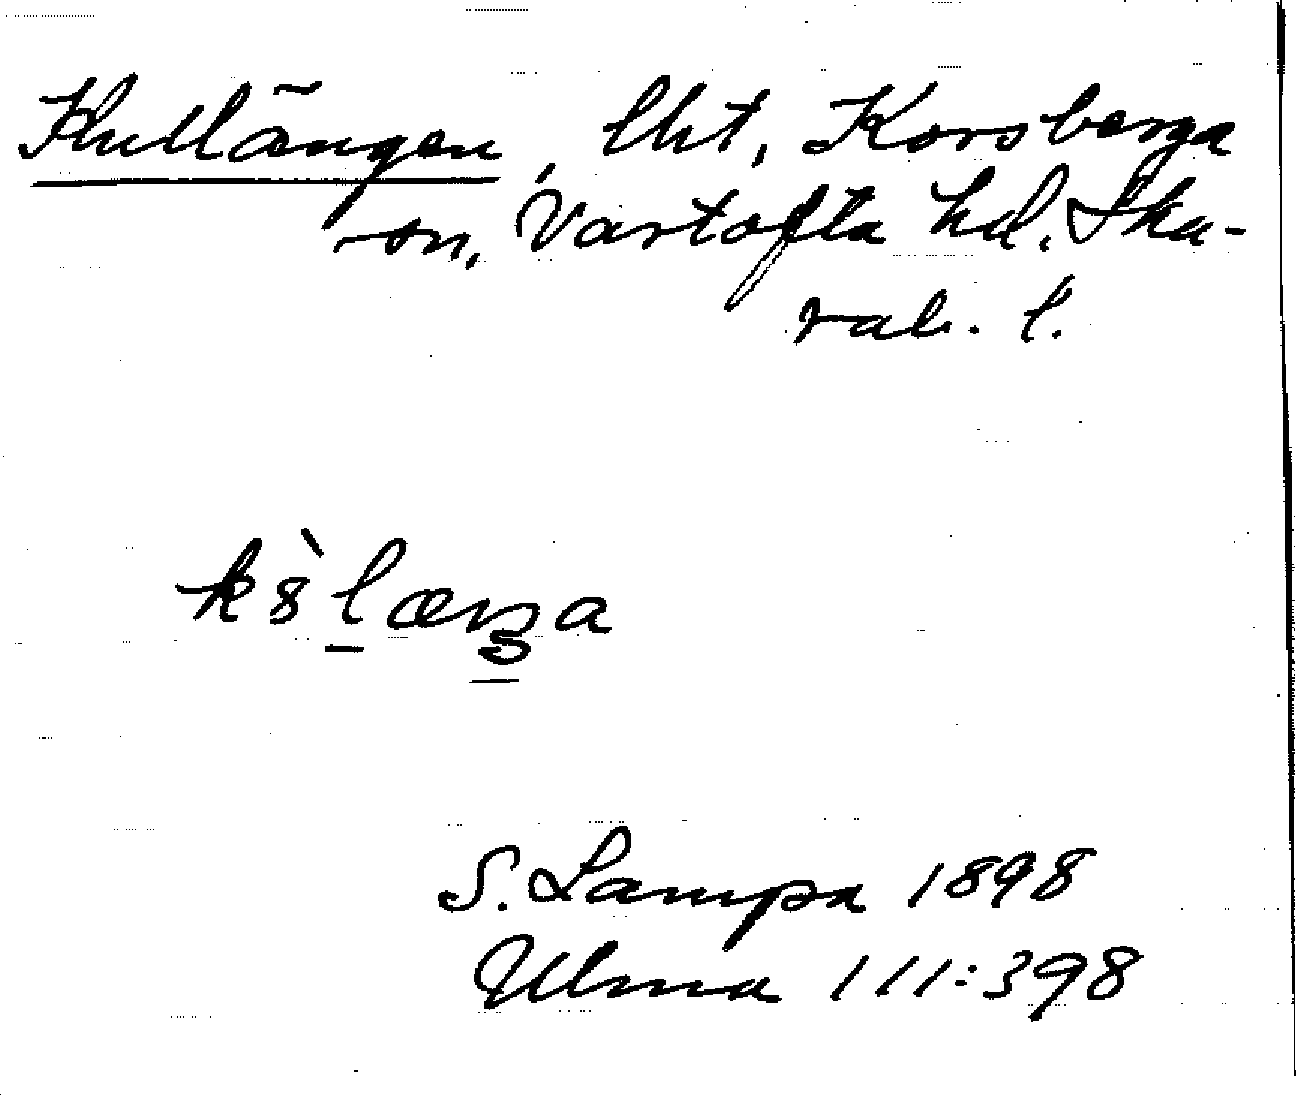 Kullängen, lht, Korsberga
sn, Vartofta hd. Ska-
rab. l.
k8̀l̲æŋa
S. Lampa 1898
Ulma 111:398